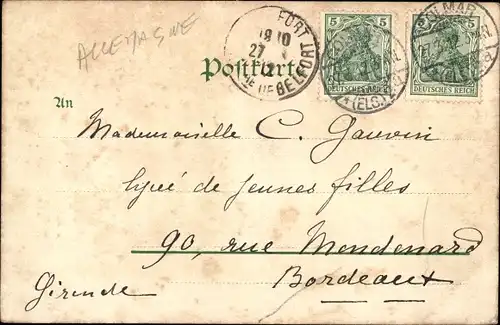 ALLEMAGNE
BELFORT
18 10
27
5 5
5 5
DEUTSCHES REICH
DEUTSCHES REICH
COLMAR
(ELS.)
Postkarte
An
Mademoiselle C. Gauvin
lycée de jeunes filles
90, rue Mondenard
Bordeaux
Gironde